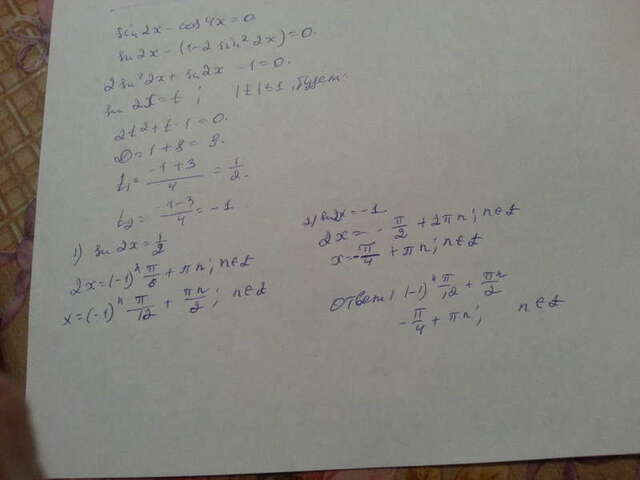 sin 2x - cos 4x = 0
sin 2x - (1 - 2 sin² 2x) = 0.
2 sin² 2x + sin 2x - 1 = 0.
sin 2x = t ; |t| ≤ 1, будет:
2t² + t - 1 = 0.
D = 1 + 8 = 9.
t₁ = (-1+3)/4 = 1/2.
t₂ = (-1-3)/4 = -1.
1) sin 2x = 1/2
2x = (-1)ⁿ π/6 + πn; n∈Z
x = (-1)ⁿ π/12 + πn/2; n∈Z
2) sin 2x = -1
2x = -π/2 + 2πn; n∈Z
x = -π/4 + πn; n∈Z
Ответ: (-1)ⁿ π/12 + πn/2
-π/4 + πn; n∈Z